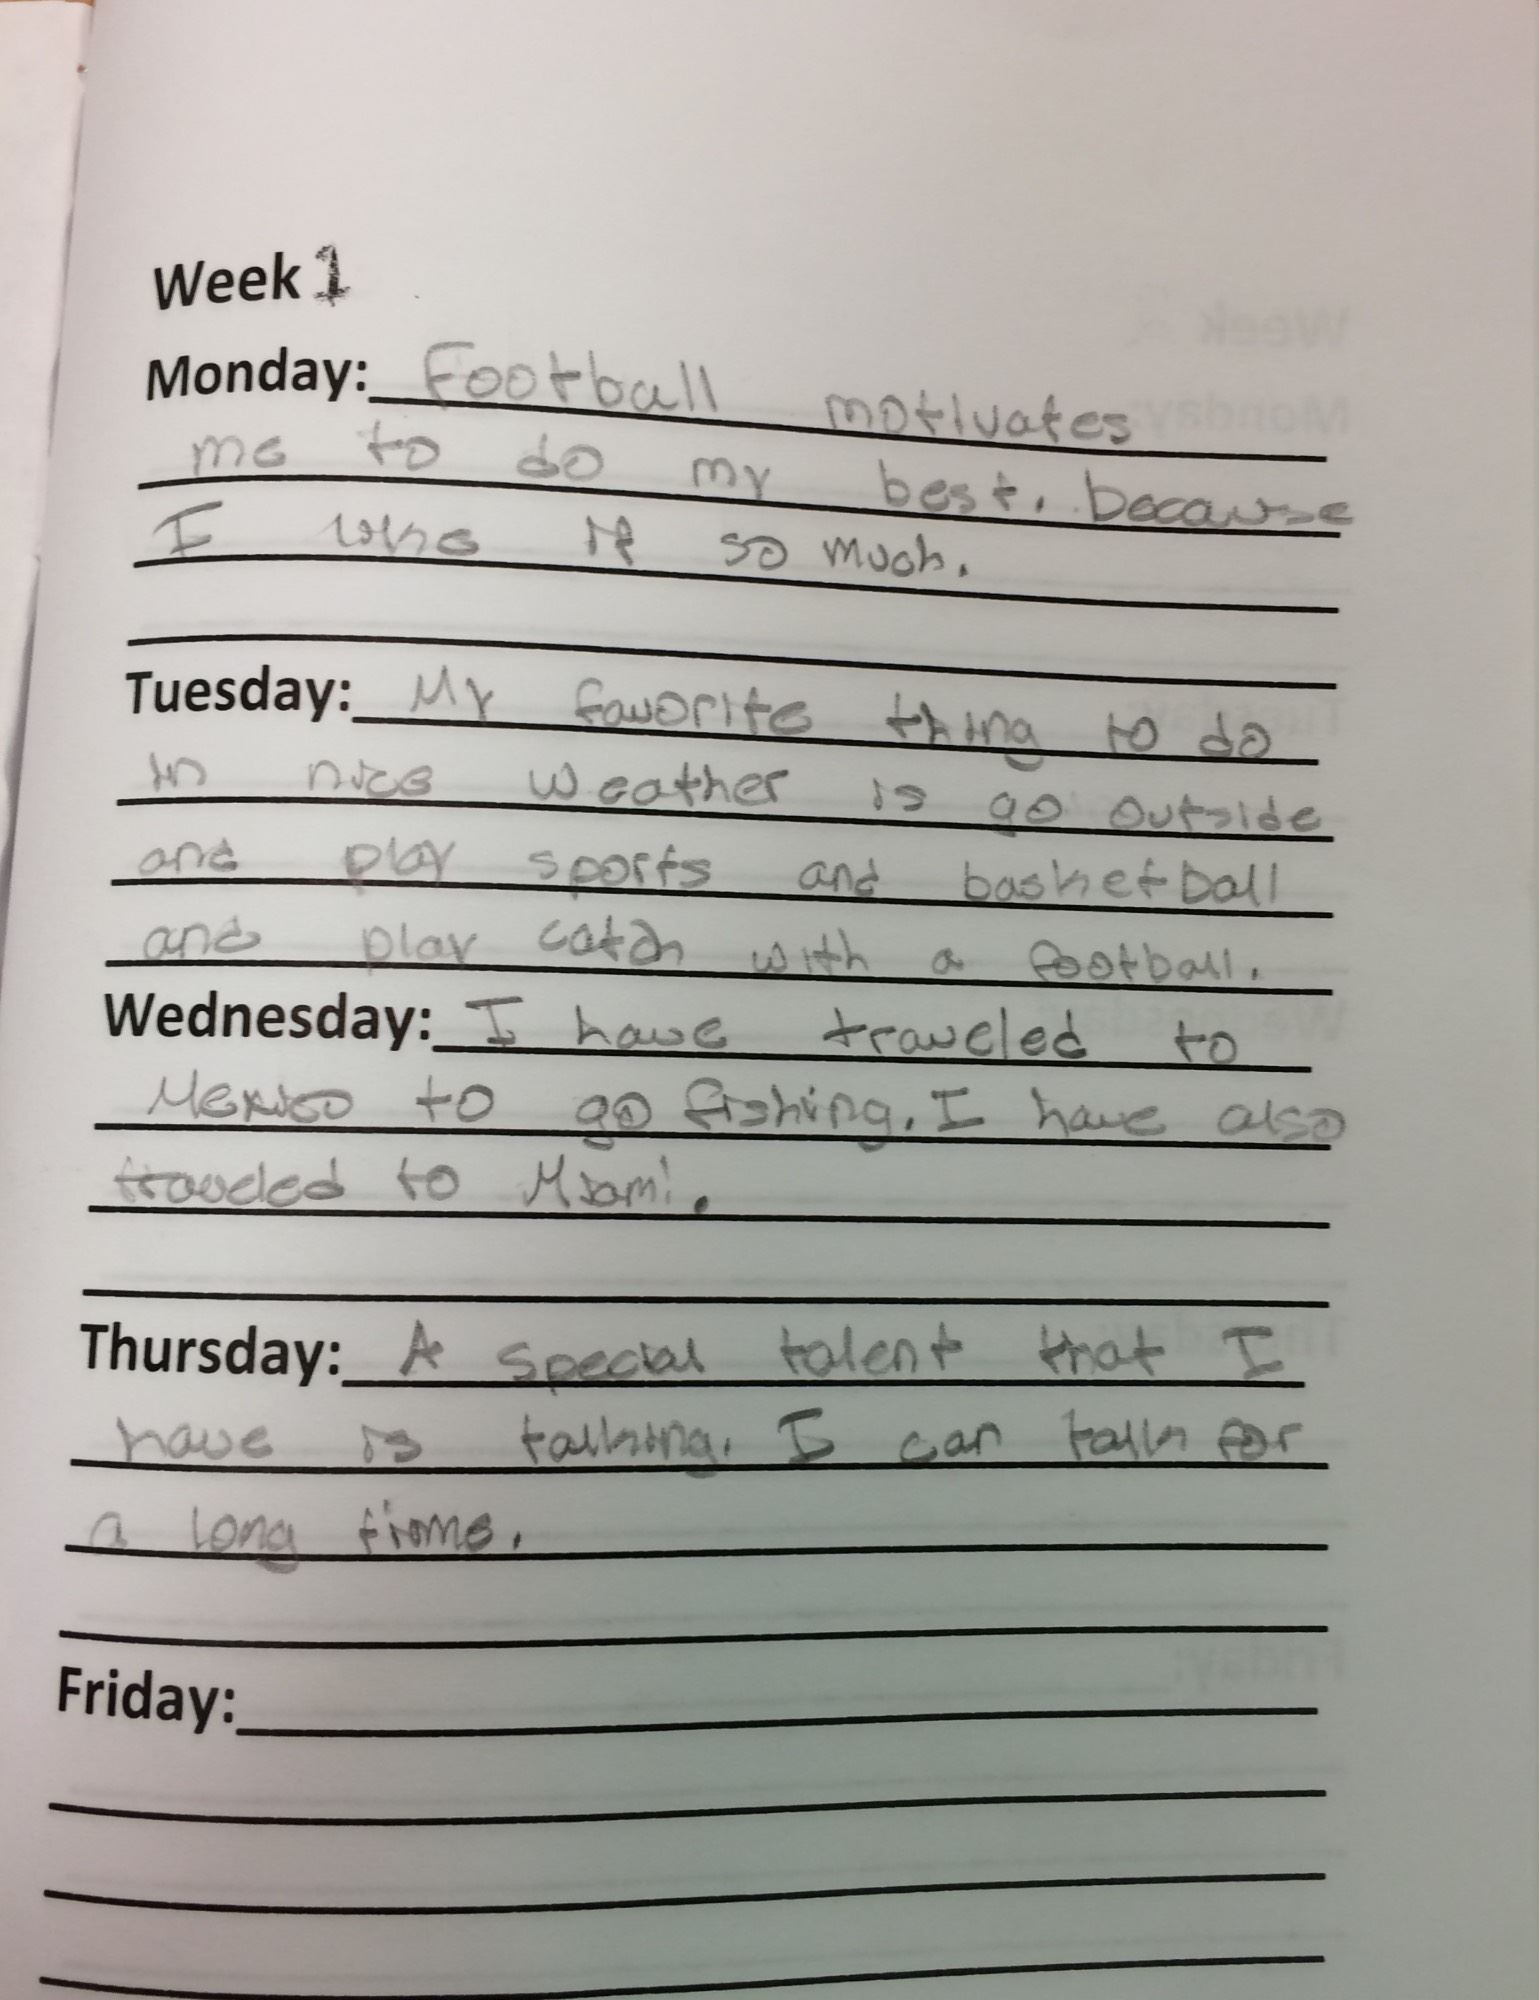 Week 1
Monday: Football motivates
me to do my best. because
I like it so much.
Tuesday: My favorite thing to do
in nice weather is go outside
and play sports and basketball
and play catch with a football.
Wednesday: I have traveled to
Mexico to go fishing. I have also
traveled to Miami.
Thursday: A special talent that I
have is talking. I can talk for
a long time.
Friday: